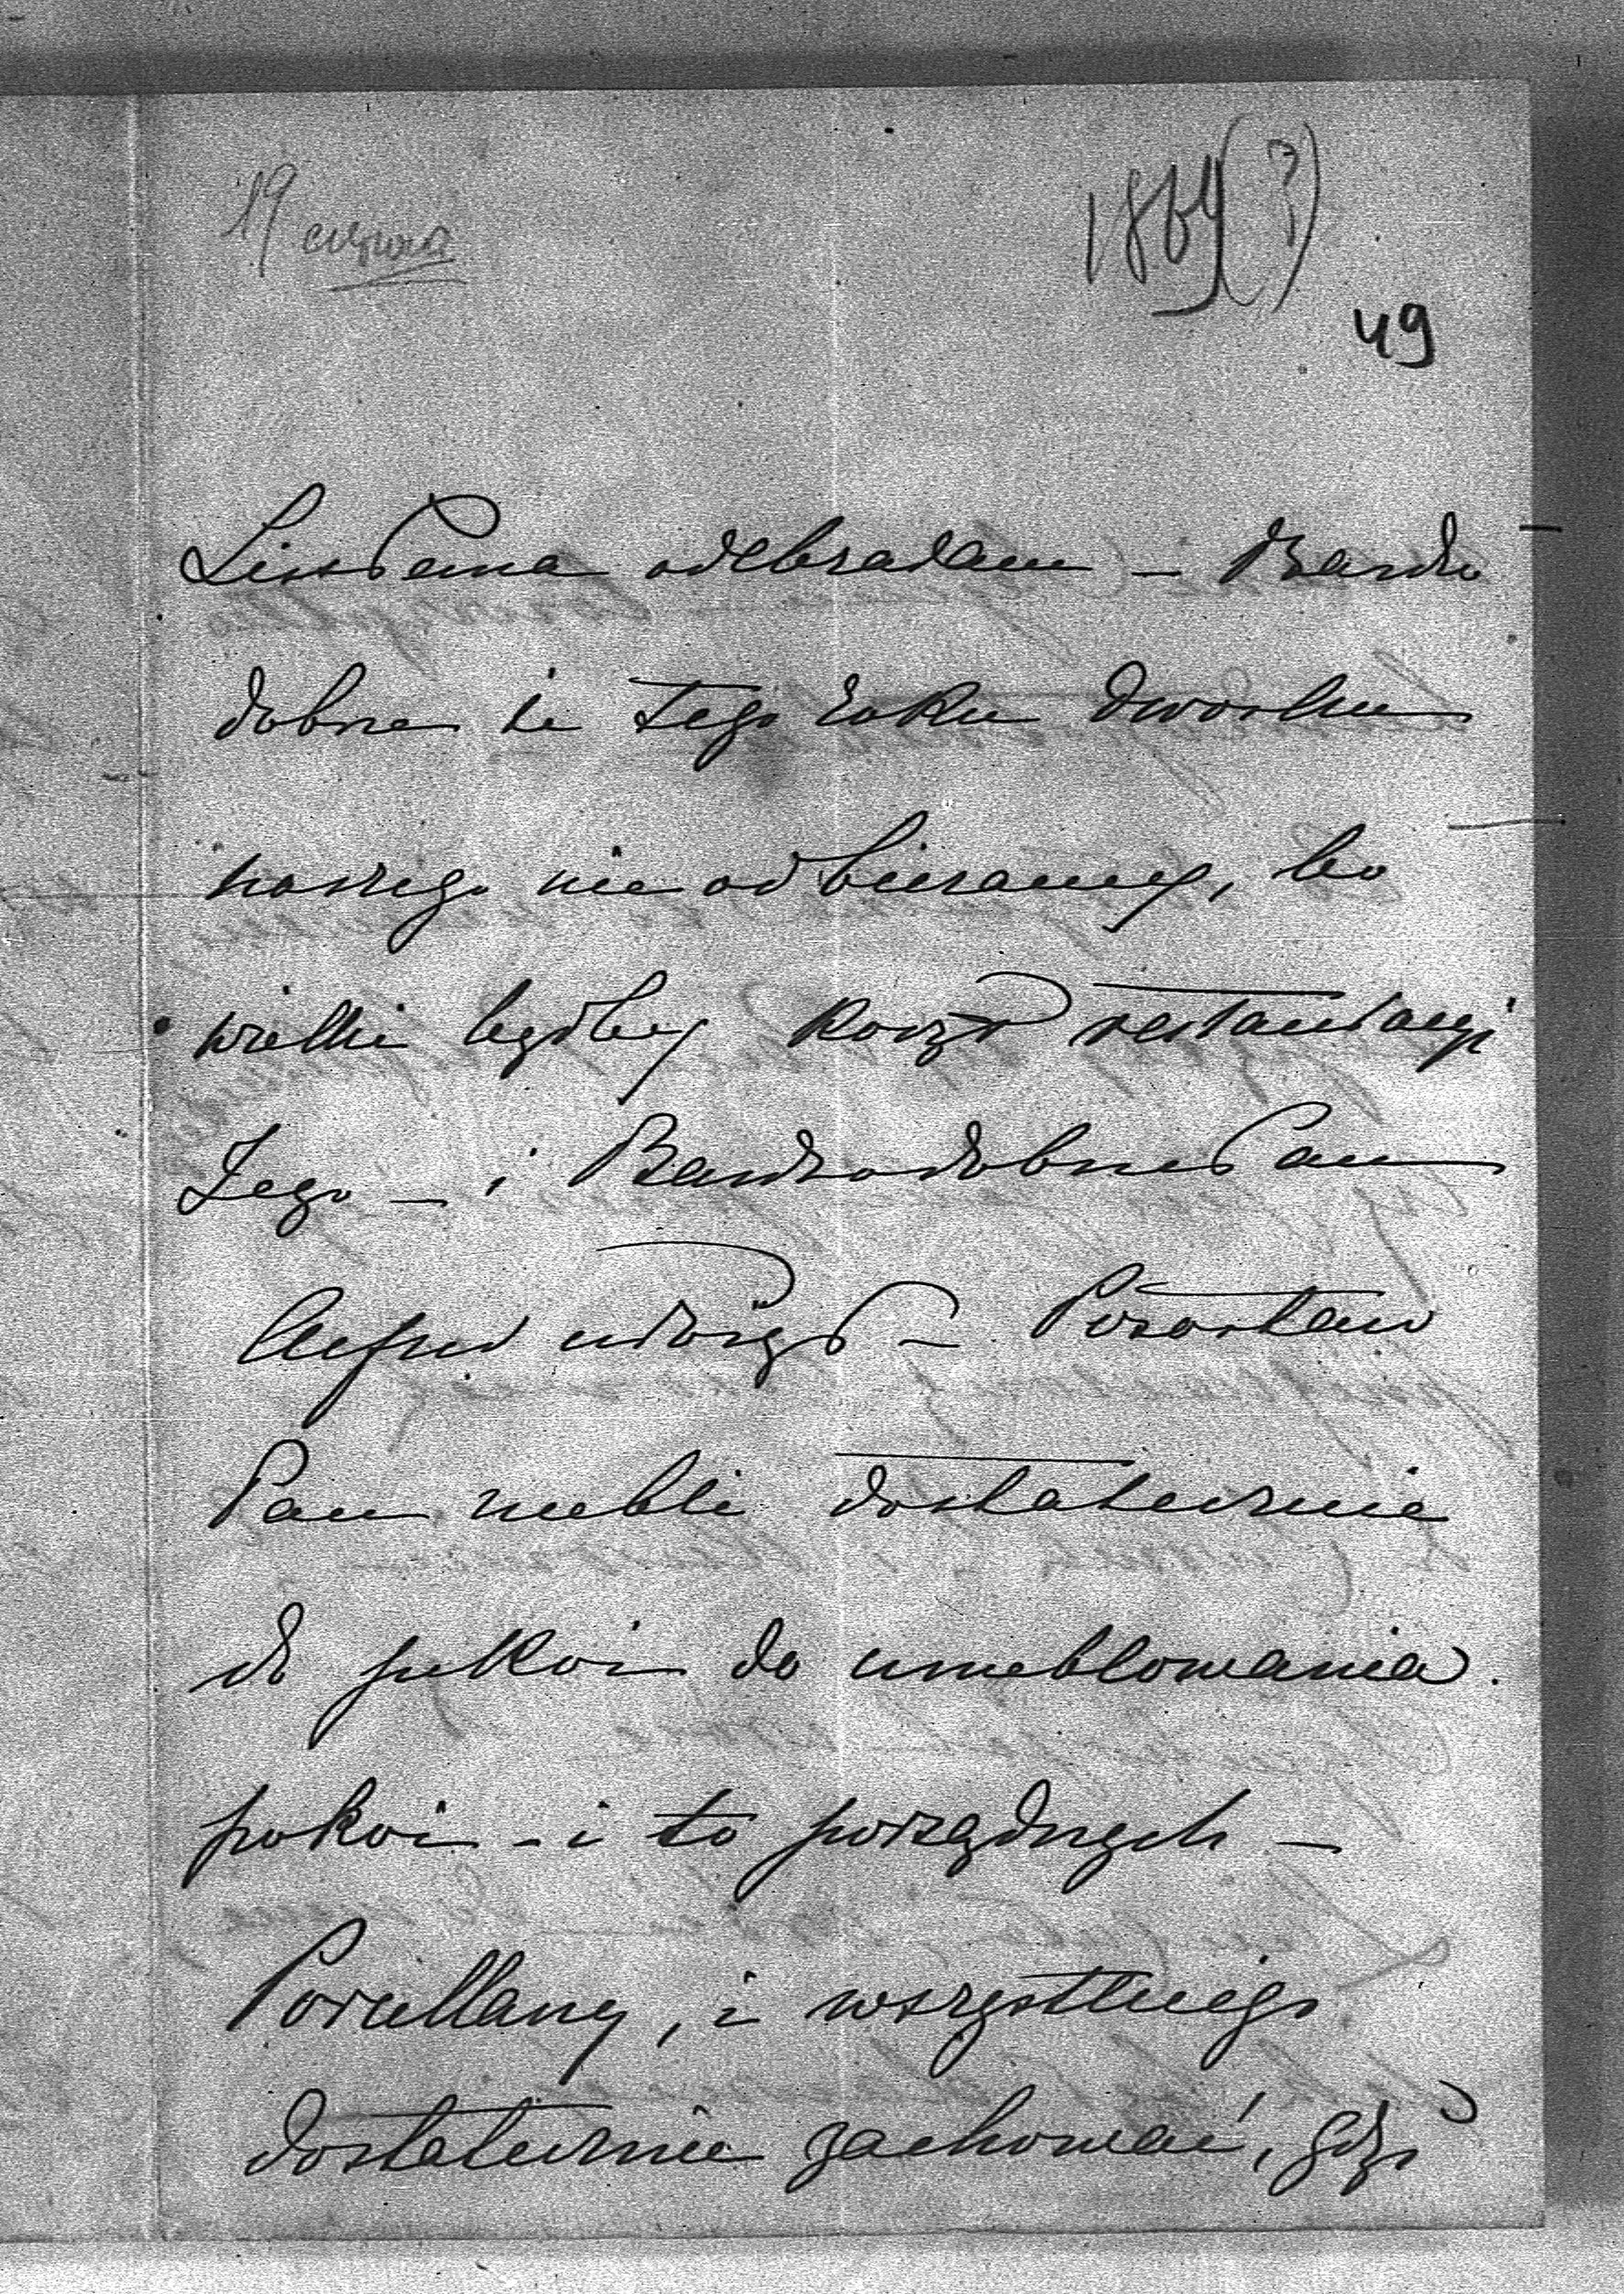 19 czerwca
1869 (?)
49
List Pana odebrałam – Bardzo
dobrze że tego roku dworku
naszego nie odbieramy, bo
wielki byłby koszt restauracyi
Jego – i Bardzo dobrze Pan
Alfred urządził – Pozostaw
Pan mebli dostatecznie
do pokoi do umeblowania
pokoi – i to porządnych –
Porcellany, i wszystkiego
dostatecznie zachować, gdyż